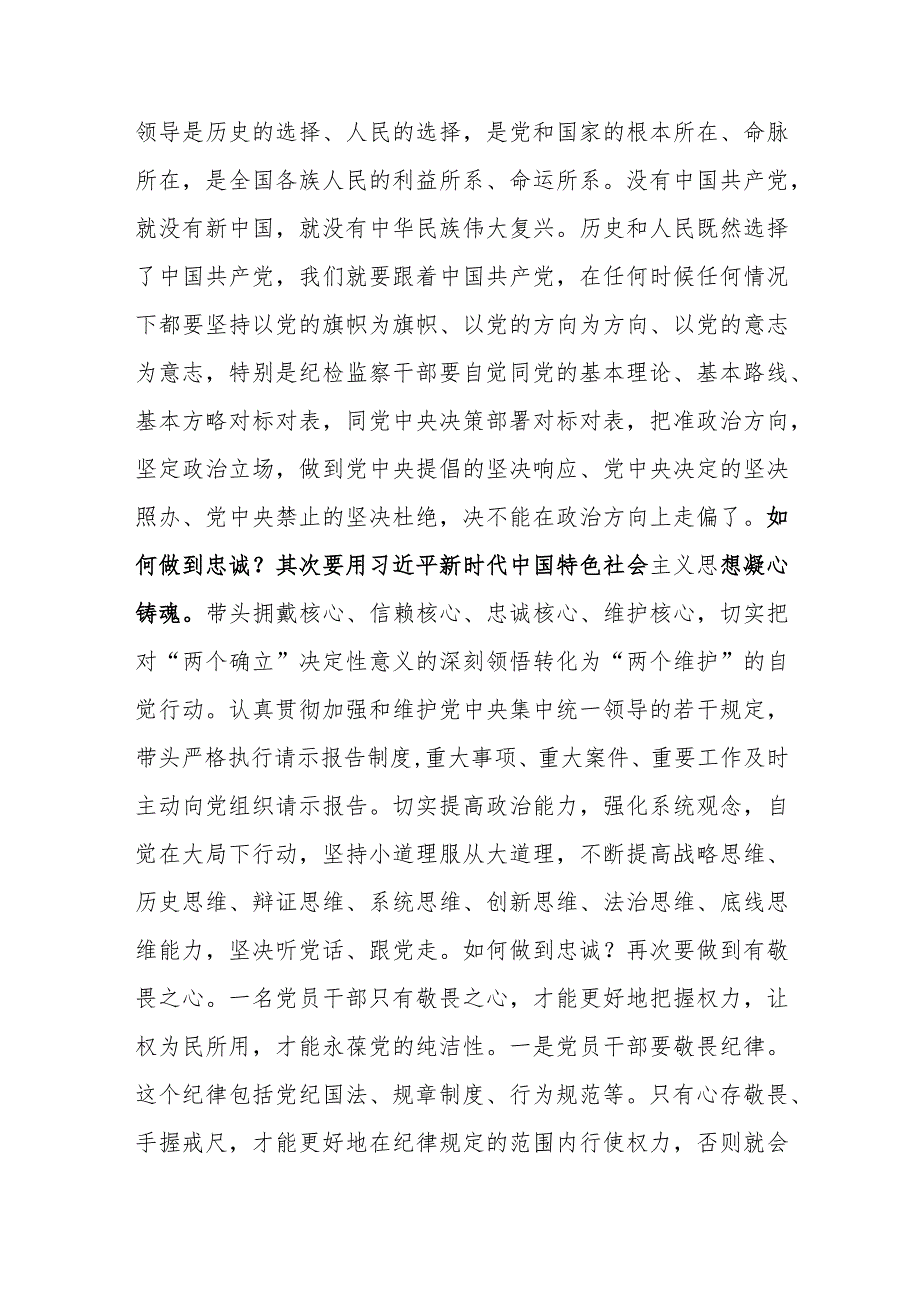 领导是历史的选择、人民的选择，是党和国家的根本所在、命脉
所在，是全国各族人民的利益所系、命运所系。没有中国共产党，
就没有新中国，就没有中华民族伟大复兴。历史和人民既然选择
了中国共产党，我们就要跟着中国共产党，在任何时候任何情况
下都要坚持以党的旗帜为旗帜、以党的方向为方向、以党的意志
为意志，特别是纪检监察干部要自觉同党的基本理论、基本路线、
基本方略对标对表，同党中央决策部署对标对表，把准政治方向，
坚定政治立场，做到党中央提倡的坚决响应、党中央决定的坚决
照办、党中央禁止的坚决杜绝，决不能在政治方向上走偏了。如
何做到忠诚？其次要用习近平新时代中国特色社会主义思想凝心
铸魂。带头拥戴核心、信赖核心、忠诚核心、维护核心，切实把
对“两个确立”决定性意义的深刻领悟转化为“两个维护”的自
觉行动。认真贯彻加强和维护党中央集中统一领导的若干规定，
带头严格执行请示报告制度,重大事项、重大案件、重要工作及时
主动向党组织请示报告。切实提高政治能力，强化系统观念，自
觉在大局下行动，坚持小道理服从大道理，不断提高战略思维、
历史思维、辩证思维、系统思维、创新思维、法治思维、底线思
维能力，坚决听党话、跟党走。如何做到忠诚？再次要做到有敬
畏之心。一名党员干部只有敬畏之心，才能更好地把握权力，让
权为民所用，才能永葆党的纯洁性。一是党员干部要敬畏纪律。
这个纪律包括党纪国法、规章制度、行为规范等。只有心存敬畏、
手握戒尺，才能更好地在纪律规定的范围内行使权力，否则就会